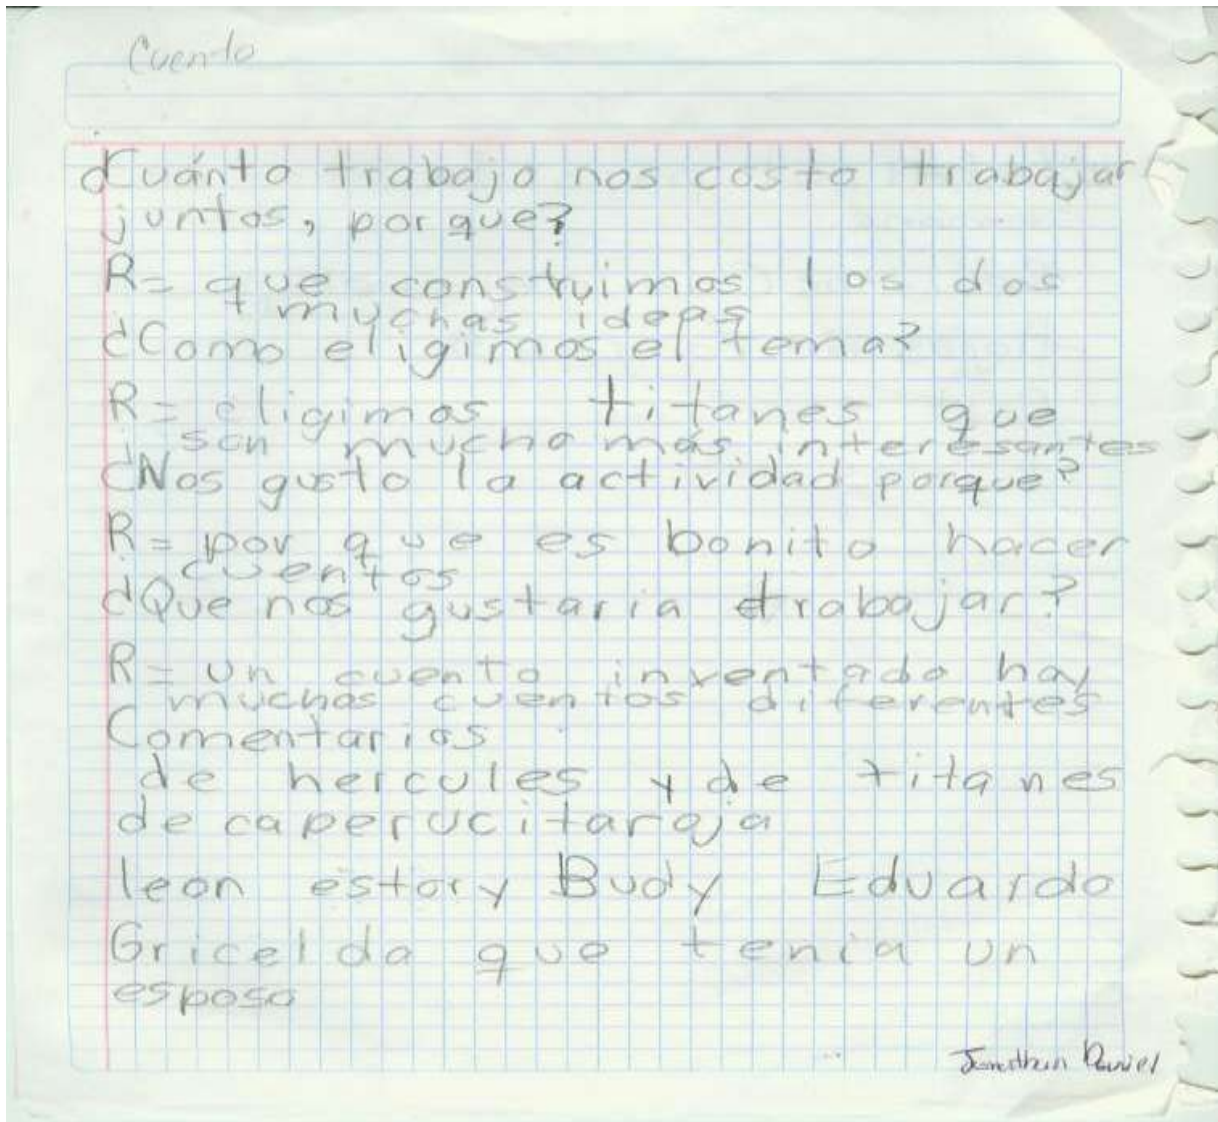 Cuento
¿Cuánto trabajo nos costo trabajar
juntos, porque?
R= que construimos los dos
muchas ideas
¿Como eligimos el tema?
R= eligimos titanes que
son mucho más interesantes
¿Nos gusto la actividad porque?
R= por que es bonito hacer
cuentos
¿Que nos gustaria trabajar?
R= un cuento inventado hay
muchos cuentos diferentes
Comentarios
de hercules y de titanes
de caperucitaroja
leon estory Budy Eduardo
Gricelda que tenia un
esposo
Jonathan Daniel